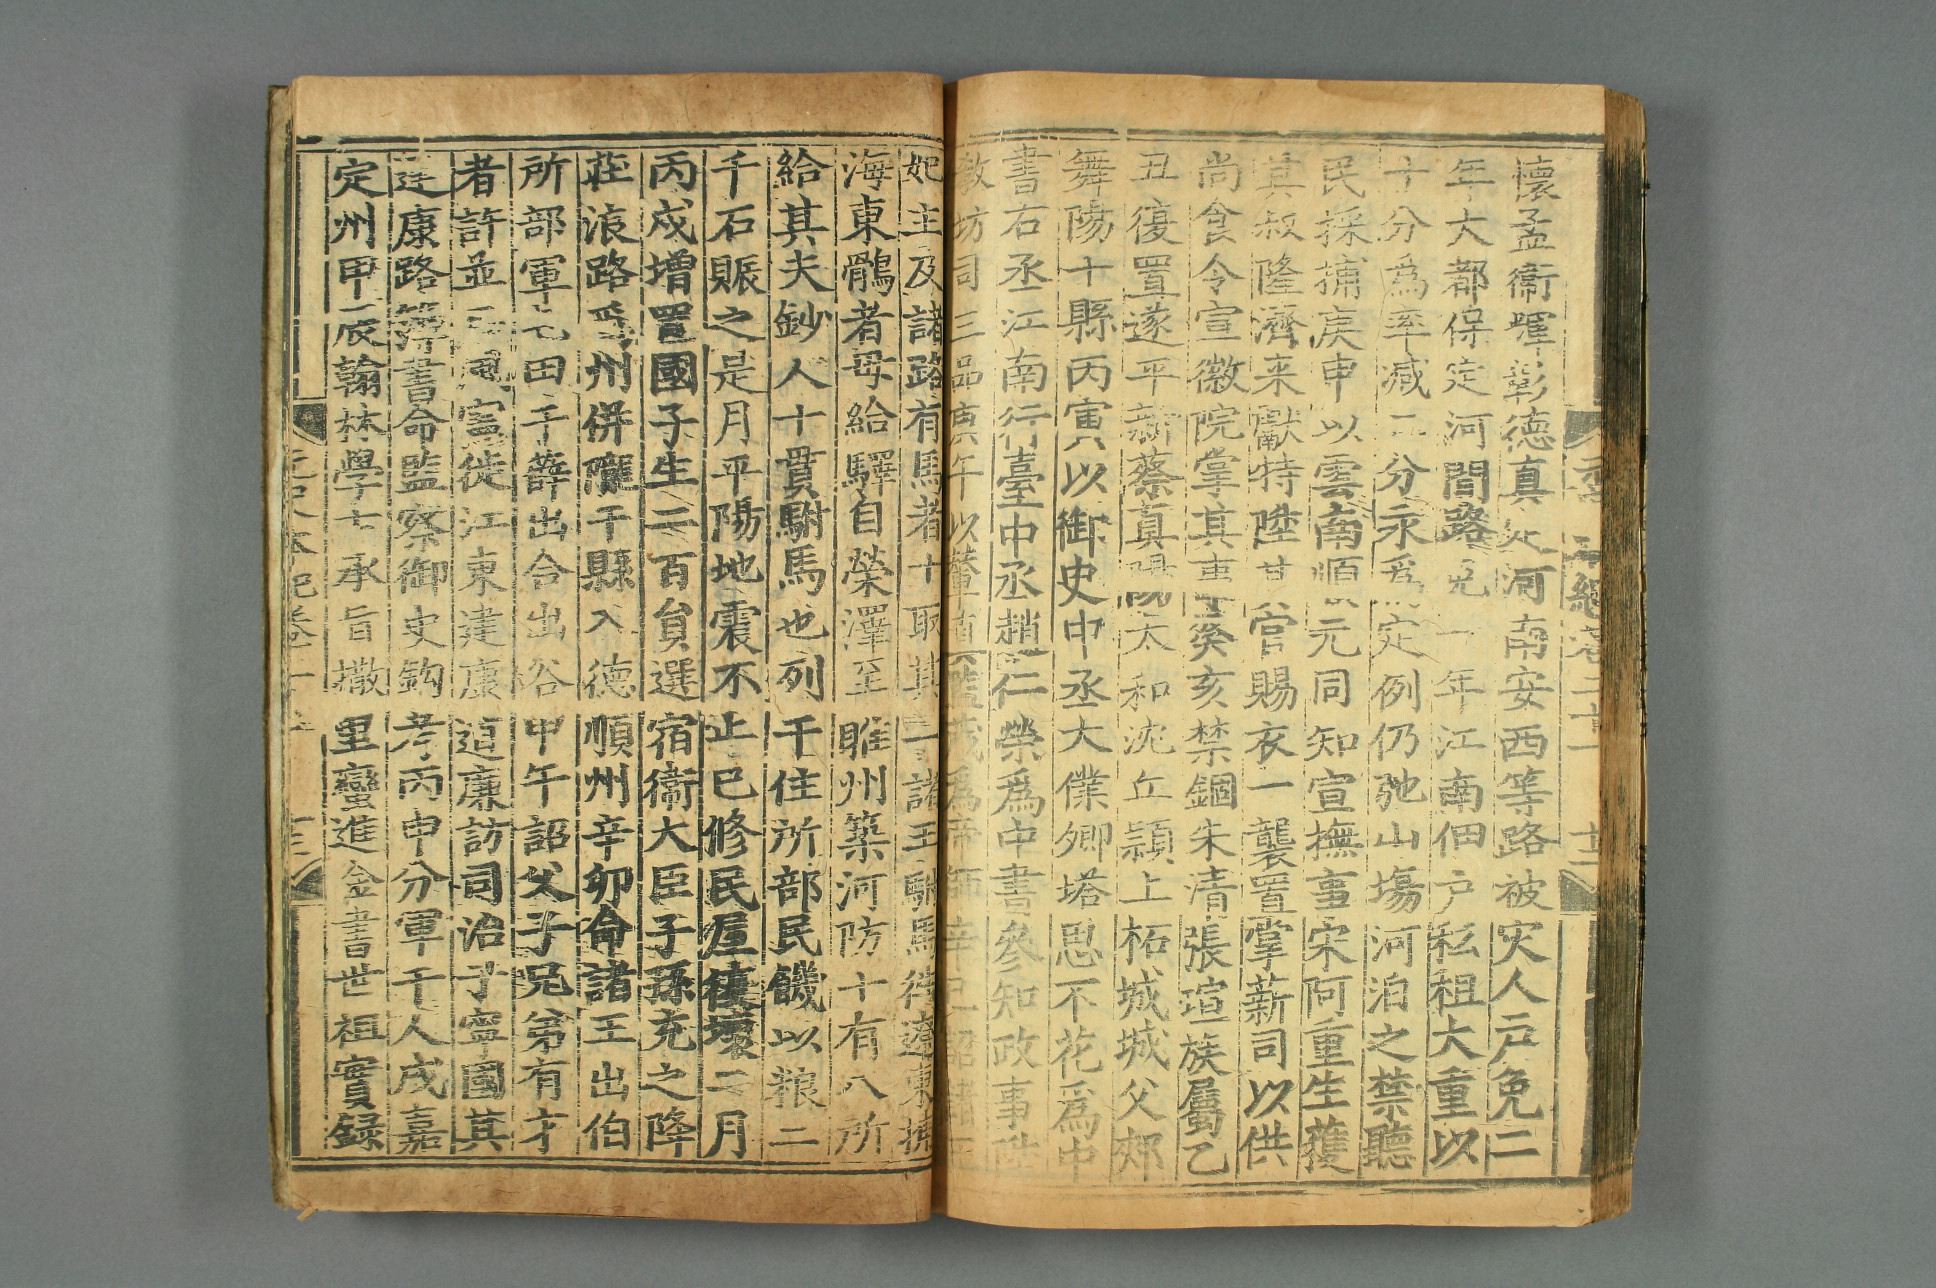 懷孟衛輝彰德真定河南安西等路被灾人户免二
年大都保定河間路免一年江南佃户私租太重以
十分爲率減二分永爲定例仍弛山塲河泊之禁聽
民採捕庚申以雲南順元同知宣撫事宋阿重生獲
其叔隆濟来獻特陞其官賜衣一襲置掌薪司以供
尚食令宣徽院掌其事癸亥禁錮朱清張瑄族屬乙
丑復置遂平新蔡真陽太和沈丘頴上柘城城父郟
舞陽十縣丙寅以御史中丞太僕卿塔思不花爲中
書右丞江南行臺中丞趙仁榮爲中書參知政事陞
教坊司三品庚午以輦真監藏爲帝師辛巳詔諸王
妃主及諸路有馬者十取其三諸王駙馬徃遼東捕
海東鶻者毋給驛自榮澤至睢州築河防十有八所
給其夫鈔人十貫駙馬也列干住所部民饑以粮二
千石賑之是月平陽地震不止巳修民屋復壞二月
丙戌增置國子生二百員選宿衛大臣子孫充之降
莊浪路爲州併隴干縣入德順州辛卯命諸王出伯
所部軍屯田于薛出合出谷甲午詔父子兄弟有才
者許並居風憲徙江東建康道廉訪司治于寧國其
建康路簿書命監察御史鈎考丙申分軍千人戍嘉
定州甲辰翰林學士承旨撒里蠻進金書世祖實録
元史本紀卷二十一 十三